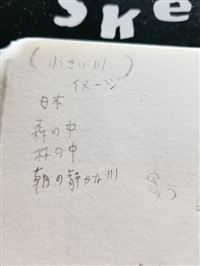 SKe
(小さい川)
イメージ
日本
森の中
林の中
朝の静かな川